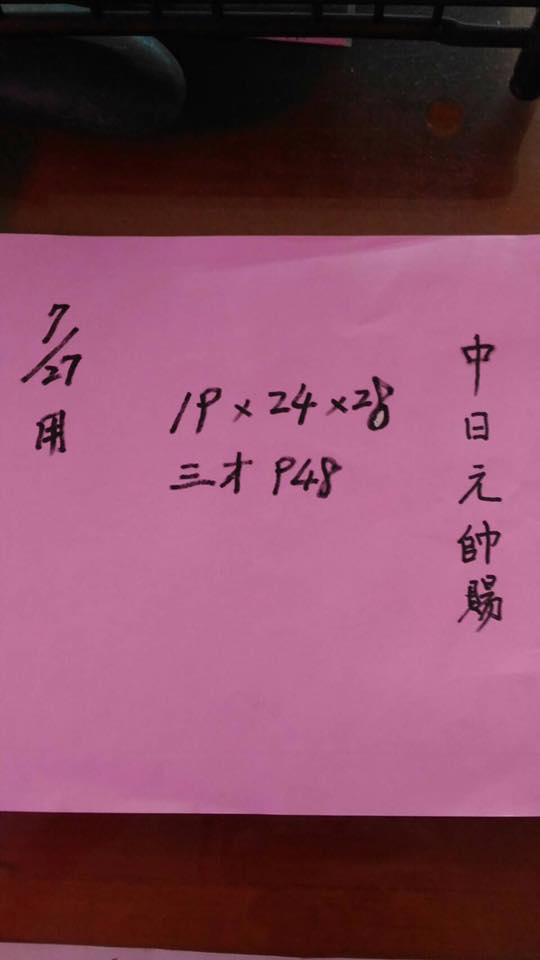 中日元帥賜
19×24×28
三才 948
7/27用